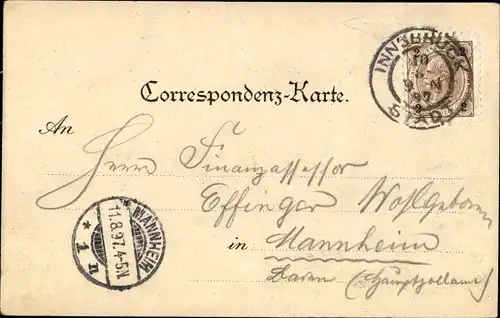 INNSBRUCK
STADT
2 2
2 2
Correspondenz-Karte.
An
Herrn Finanzassessor
Effinger Wohlgeboren
in Mannheim
Baden (Hauptzollamt)
MANNHEIM
11.8.97. 4-5N.
* 1 n